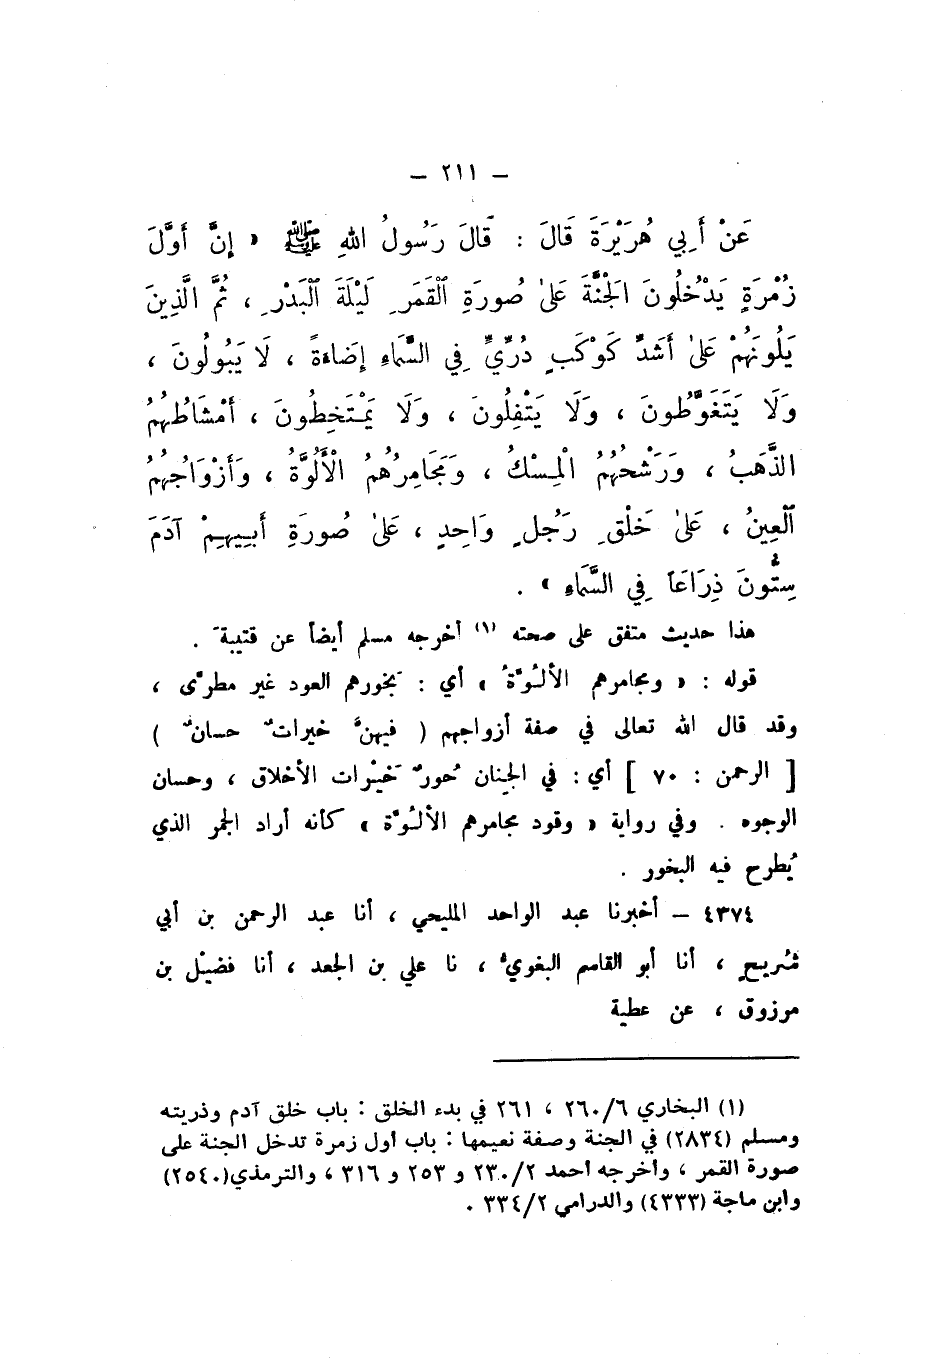 – ٢١١ –
عَنْ أَبِي هُرَيْرَةَ قَالَ : قَالَ رَسُولُ اللهِ ﷺ « إِنَّ أَوَّلَ
زُمْرَةٍ يَدْخُلُونَ الْجَنَّةَ عَلَىٰ صُورَةِ ٱلْقَمَرِ لَيْلَةَ ٱلْبَدْرِ ، ثُمَّ الَّذِينَ
يَلُونَهُمْ عَلَىٰ أَشَدِّ كَوْكَبٍ دُرِّيٍّ فِي السَّمَاءِ إِضَاءَةً ، لَا يَبُولُونَ ،
وَلَا يَتَغَوَّطُونَ ، وَلَا يَتْفِلُونَ ، وَلَا يَمْتَخِطُونَ ، أَمْشَاطُهُمُ
الذَّهَبُ ، وَرَشْحُهُمُ الْمِسْكُ ، وَمَجَامِرُهُمُ الْأَلُوَّةُ ، وَأَزْوَاجُهُمُ
ٱلْعِينُ ، عَلَىٰ خَلْقِ رَجُلٍ وَاحِدٍ ، عَلَىٰ صُورَةِ أَبِيهِمْ آدَمَ
سِتُّونَ ذِرَاعَاً فِي السَّمَاءِ » .
هذا حديث متفق على صحته (١) أخرجه مسلم أيضاً عن قتيبةَ .
قوله : « ومجامرهم الألُوَّةُ » أي : بَخورهم العود غير مطرَّى ،
وقد قال الله تعالى في صفة أزواجهم ( فيهنَّ خيراتٌ حسانٌ )
[ الرحمن : ٧٠ ] أي : في الجنان حُورٌ خَيْرات الأخلاق ، وحسان
الوجوه . وفي رواية « وقود مجامرهم الألُوَّة » كأنه أراد الجمر الذي
يُطرح فيه البخور .
٤٣٧٤ – أخبرنا عبد الواحد المليحي ، أنا عبد الرحمن بن أبي
شُريحٍ ، أنا أبو القاسم البغويُّ ، نا علي بن الجعد ، أنا فضيْل بن
مرزوق ، عن عطية
(١) البخاري ٢٦٠/٦ ، ٢٦١ في بدء الخلق : باب خلق آدم وذريته
ومسلم (٢٨٣٤) في الجنة وصفة نعيمها : باب أول زمرة تدخل الجنة على
صورة القمر ، وأخرجه أحمد ٢٣٠/٢ و ٢٥٣ و ٣١٦ ، والترمذي(٢٥٤٠)
وابن ماجة (٤٣٣٣) والدارامي ٣٣٤/٢ .